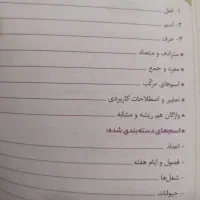 ۱- فعل
۲- اسم
۳- حرف
* مترادف و متضاد
* مفرد و جمع
* اسم‌های مرکّب
* تعابیر و اصطلاحات کاربردی
* واژگان هم ریشه و مشابه
* اسم‌های دسته‌بندی شده:
- اعداد
- فصول و ایام هفته
- شغل‌ها
- حیوانات